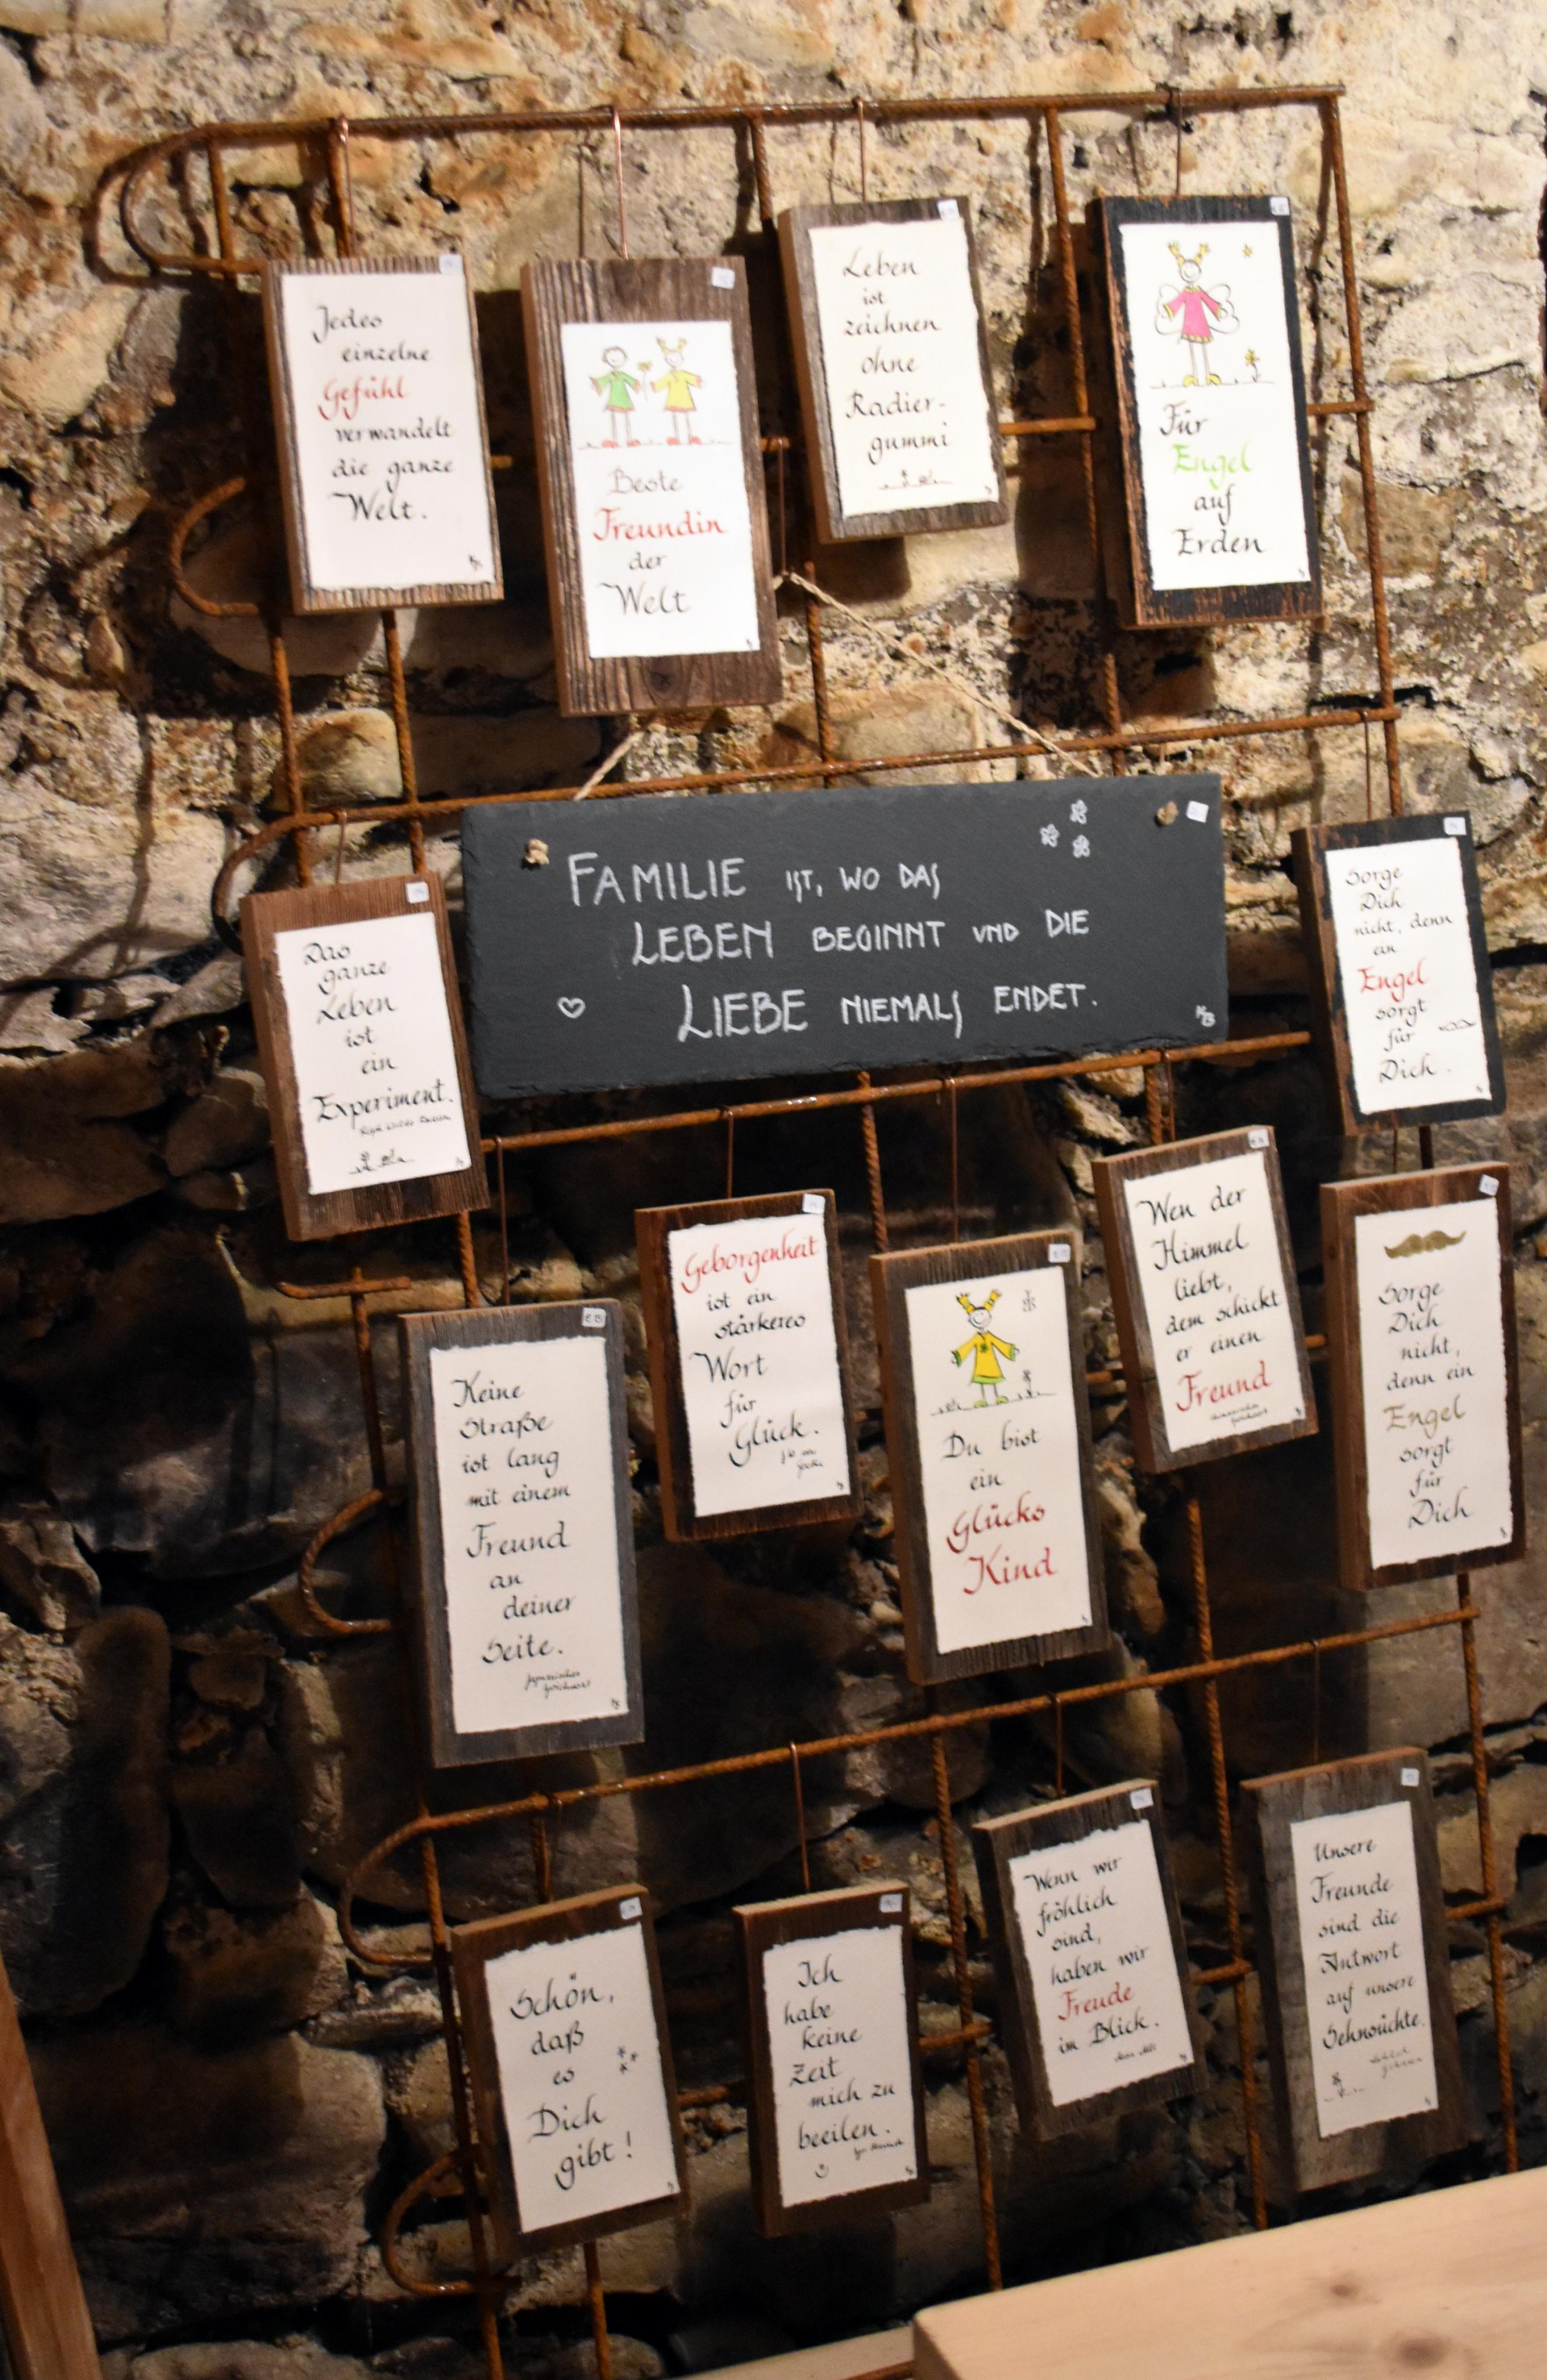 Jedes
einzelne
Gefühl
verwandelt
die ganze
Welt.
Beste
Freundin
der
Welt
Leben
ist
zeichnen
ohne
Radier-
gummi
Für
Engel
auf
Erden
FAMILIE IST, WO DAS
LEBEN BEGINNT UND DIE
LIEBE NIEMALS ENDET.
Das
ganze
Leben
ist
ein
Experiment.
Sorge
Dich
nicht, denn
ein
Engel
sorgt
für
Dich.
Keine
Straße
ist lang
mit einem
Freund
an
deiner
Seite.
Geborgenheit
ist ein
stärkeres
Wort
für
Glück.
Du bist
ein
Glücks
Kind
Wen der
Himmel
liebt,
dem schickt
er einen
Freund
Sorge
Dich
nicht,
denn ein
Engel
sorgt
für
Dich
Schön,
daß
es
Dich
gibt!
Ich
habe
keine
Zeit
mich zu
beeilen.
Wenn wir
fröhlich
sind,
haben wir
Freude
im Blick.
Unsere
Freunde
sind die
Antwort
auf unsere
Sehnsüchte.